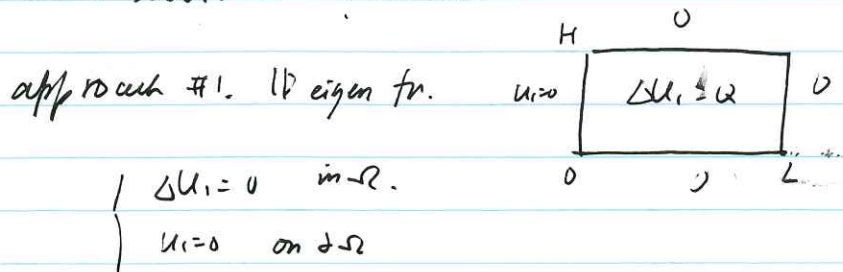 H 0
approach #1. 1D eigen fn. u₁=0 Δu₁=Q 0
0 0 L
Δu₁=0 in Ω.
u₁=0 on ∂Ω